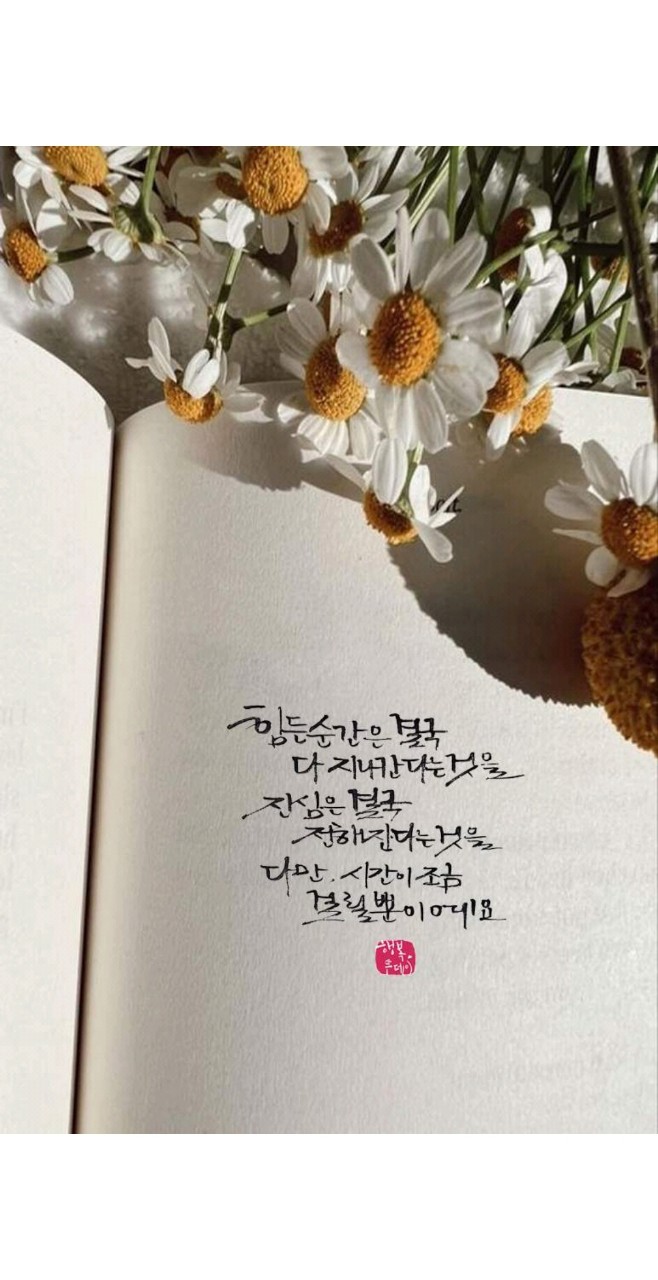 힘든순간은 결국
다 지나간다는것을
진심은 결국
전해진다는것을
다만. 시간이 조금
걸릴뿐이에요
행복.
투데이